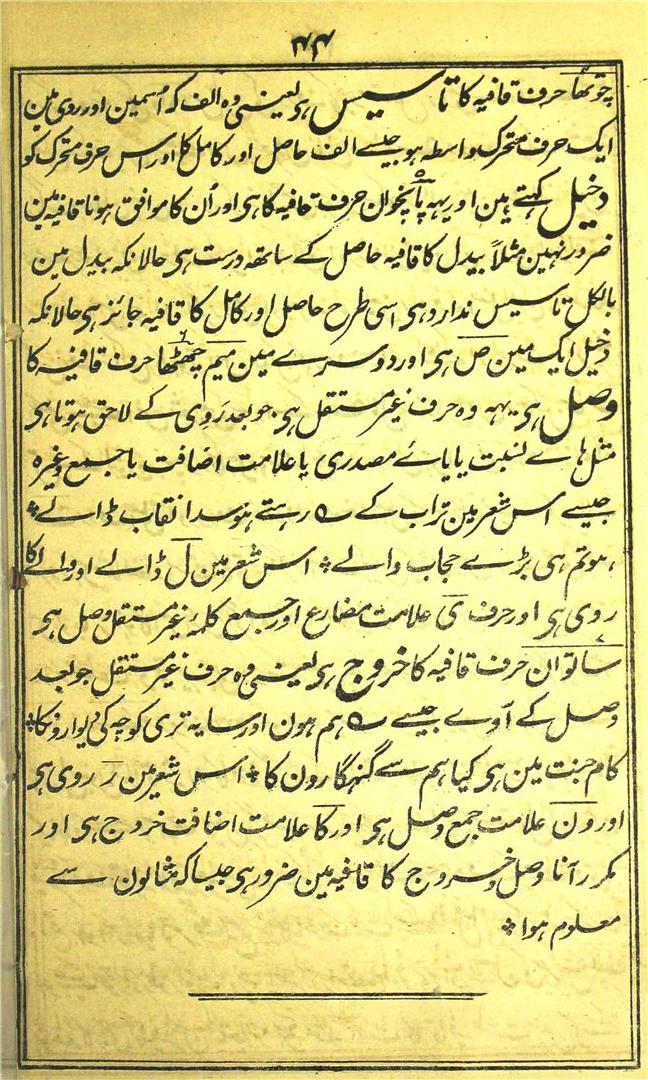 ۴۴
چوتھا حرف قافیہ کا تاسیس ہی یعنی وہ الف کہ اُسمین اور روی مین
ایک حرف متحرک واسطہ ہو جیسے الف حاصل اور کامل کا اور اس حرف متحرک کو
دخیل کہتے ہین اور یہہ پانچوان حرف قافیہ کا ہی اور اُن کا موافق ہونا قافیہ مین
ضرور نہین مثلاً بیدل کا قافیہ حاصل کے ساتھ درست ہی حالانکہ بیدل مین
بالکل تاسیس ندارد ہی اسی طرح حاصل اور کامل کا قافیہ جائز ہی حالانکہ
دخیل ایک مین ص ہی اور دوسرے مین میم چھٹھا حرف قافیہ کا
وصل ہی یہہ وہ حرف غیر مستقل ہی جو بعد رَوِی کے لاحق ہوتا ہی
مثل ہاے نسبت یا یائے مصدری یا علامت اضافت یا جمع وغیرہ
جیسے اس شعر مین تراب کے ؎ رہتے ہو سدا نقاب ڈالے *
ہو تم ہی بڑے حجاب والے * اس شعر مین ل ڈالے اور والے کا
روی ہی اور حرف ی علامت مضارع اور جمع کلمۂ غیر مستقل وصل ہی
ساتوان حرف قافیہ کا خروج ہی یعنی وہ حرف غیر مستقل جو بعد
وصل کے آوے جیسے ؎ ہم ہون اور سایہ تری کوچہ کی دیوارونکا *
کام جنت مین ہی کیا ہم سے گنہگارون کا * اس شعر مین ر روی ہی
اور ون علامت جمع وصل ہی اور کا علامت اضافت خروج ہی اور
مکرر آنا وصل و خروج کا قافیہ مین ضرور ہی جیسا کہ مثالون سے
معلوم ہوا *